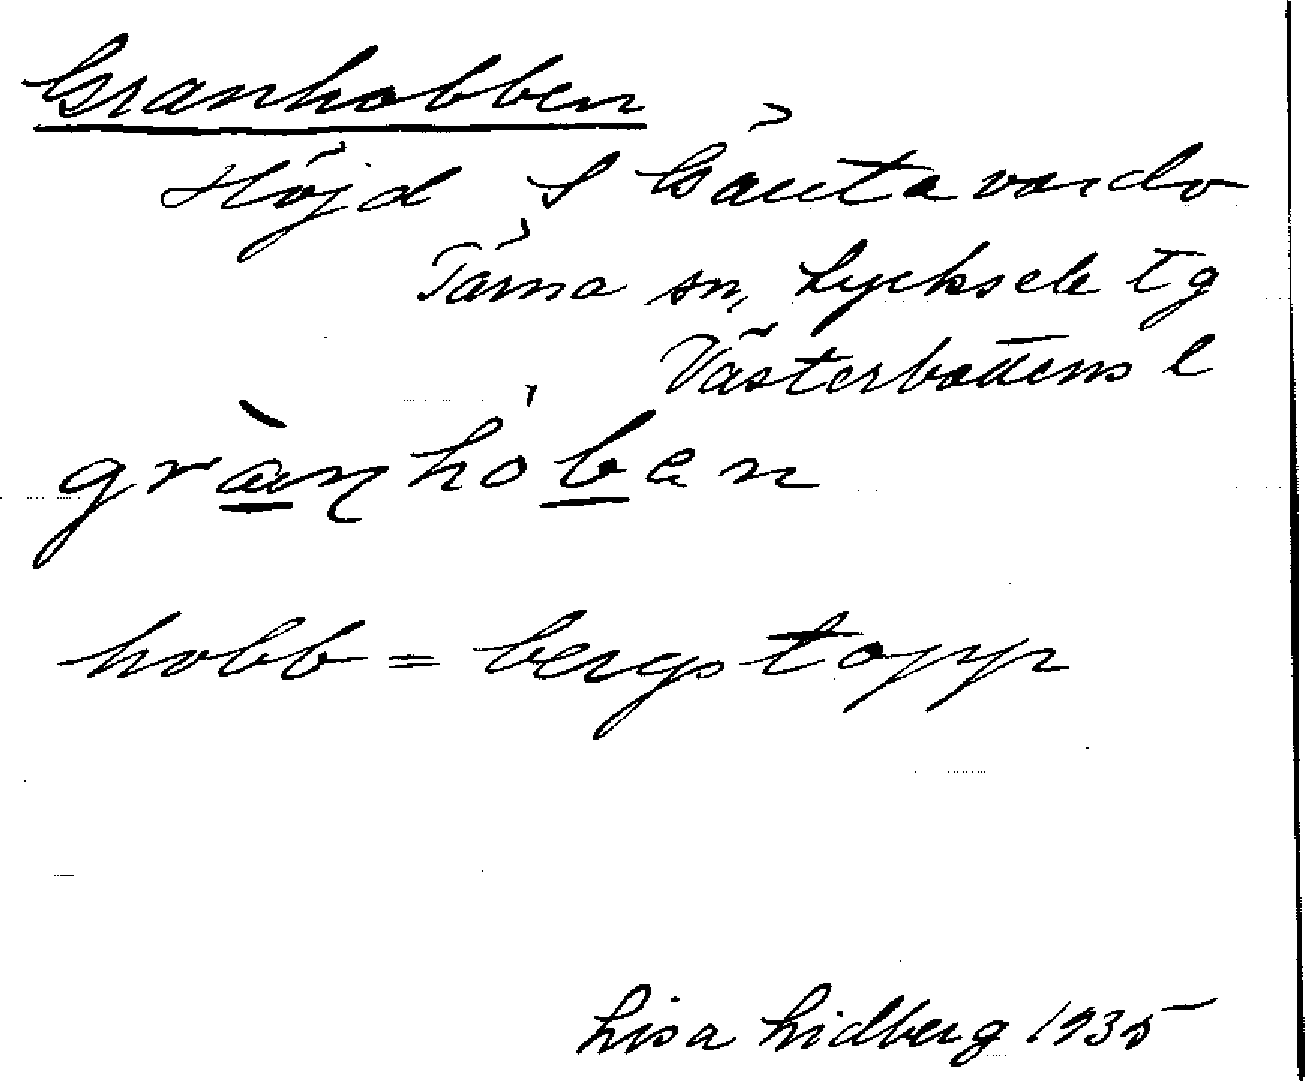 Granhobben
Höjd S Gäutavardo
Tärna sn, Lycksele tg
Västerbottens l
grànhòben
hobb = bergstopp
Lisa Lidberg 1935